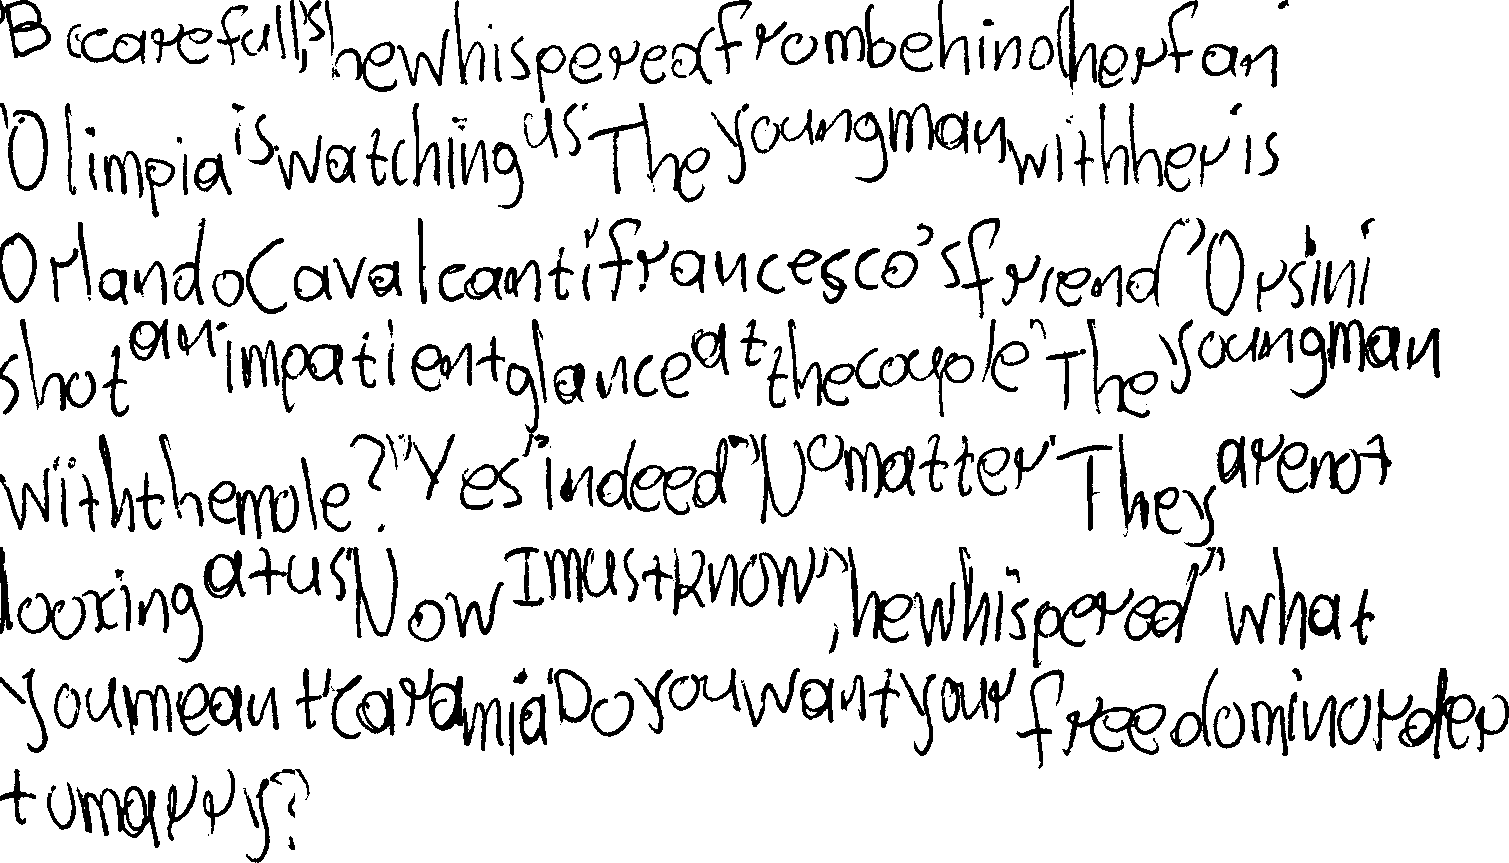 Be careful!" she whispered from behind her fan
"Olimpia is watching us. The young man with her is
Orlando Cavalcanti, francesco's friend." Orsini
shot an impatient glance at the couple. "The young man
with the mole?" "Yes, indeed." "No matter. They are not
looking at us. Now I must know," he whispered, "what
you meant, cara mia. Do you want your freedom in order
to marry?